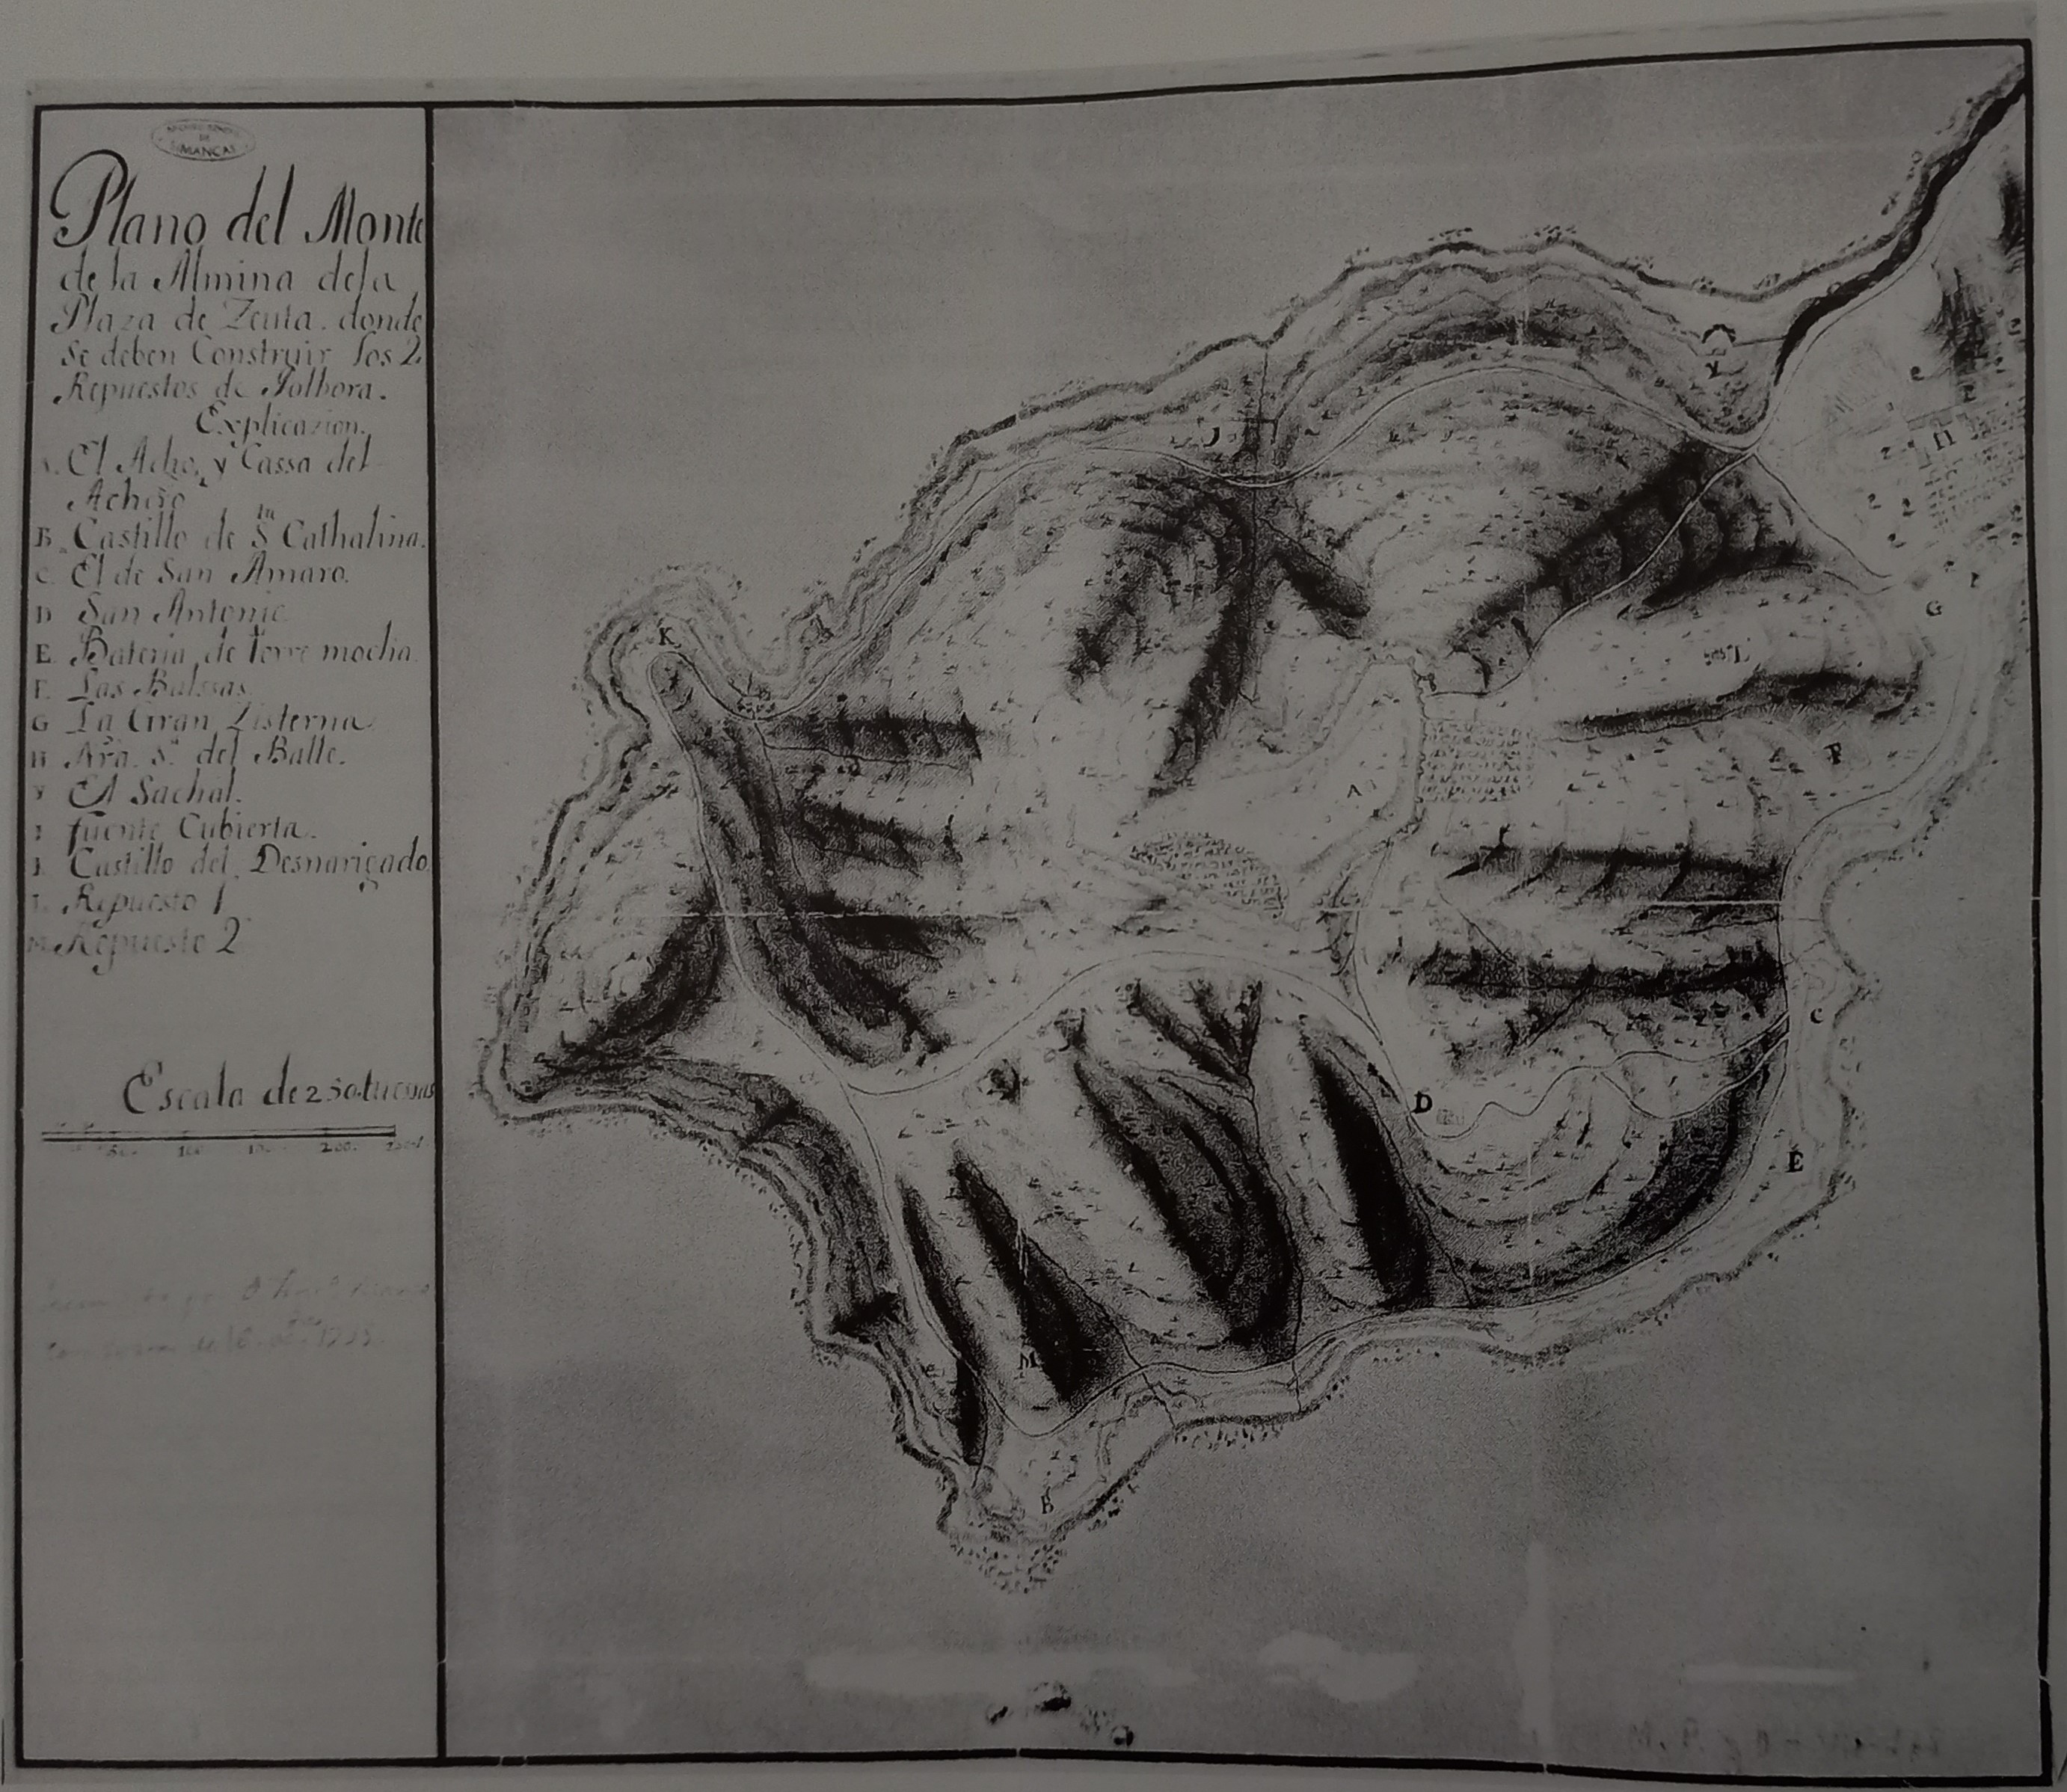 DE
SIMANCAS
Plano del Monte
de la Almina dela
Plaza de Zeuta. donde
se deben Construir los 2
Repuestos de Polbora.
Explicazion.
A. El Acho, y Cassa del
Achero
B. Castillo de Sta Cathalina.
C. El de San Amaro.
D San Antonio
E. Bateria de torre mocha
F. Las Balssas
G La Gran Zisterna
H Nra. Sa. del Balle.
Y El Sachal.
J fuente Cubierta.
K Castillo del Desnarigado
L. Repuesto 1
M. Repuesto 2
Escala de 250. tuessas
50. 100 150 200.
J
Y
H
G
K
L
F
A
C
D
E
M
B